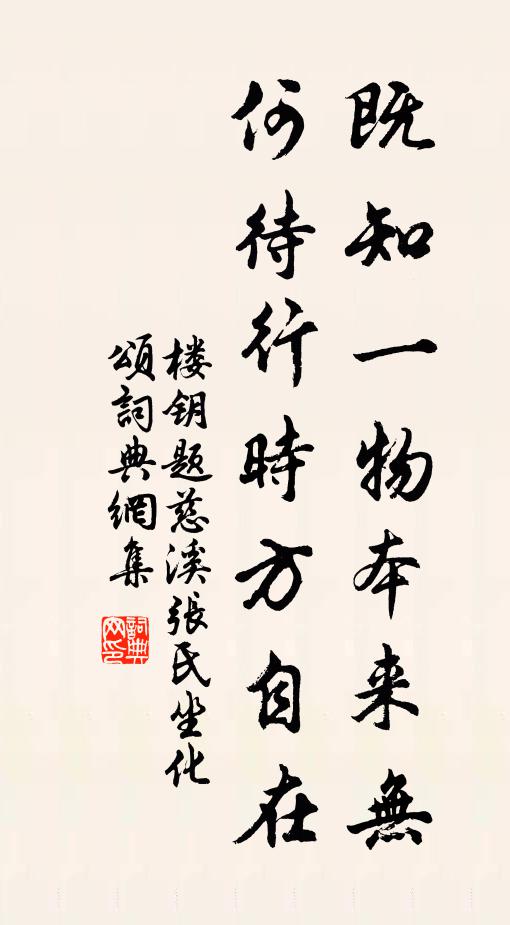 既知一物本来無
何待行時方自在
楼钥题慈溪張氏坐化
頌詞典網集
詞典网印